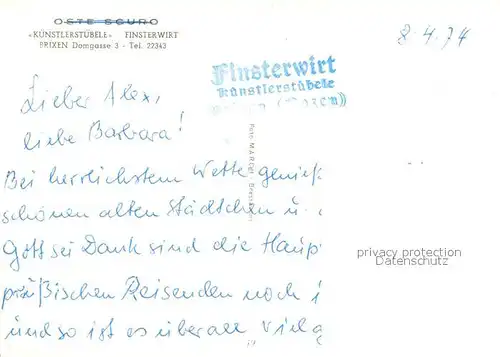 OSTE SCURO
«KÜNSTLERSTÜBELE» FINSTERWIRT
BRIXEN Domgasse 3 - Tel. 22343
8.4.74
Finsterwirt
Künstlerstübele
Lieber Alex,
liebe Barbara!
Bei herrlichstem Wette genieß
schönen alten Städtchen u.
Gott sei Dank sind die Haup
präßischen Reisenden noch
und so ist es überall viel
Foto MARCEL
privacy protection
Datenschutz